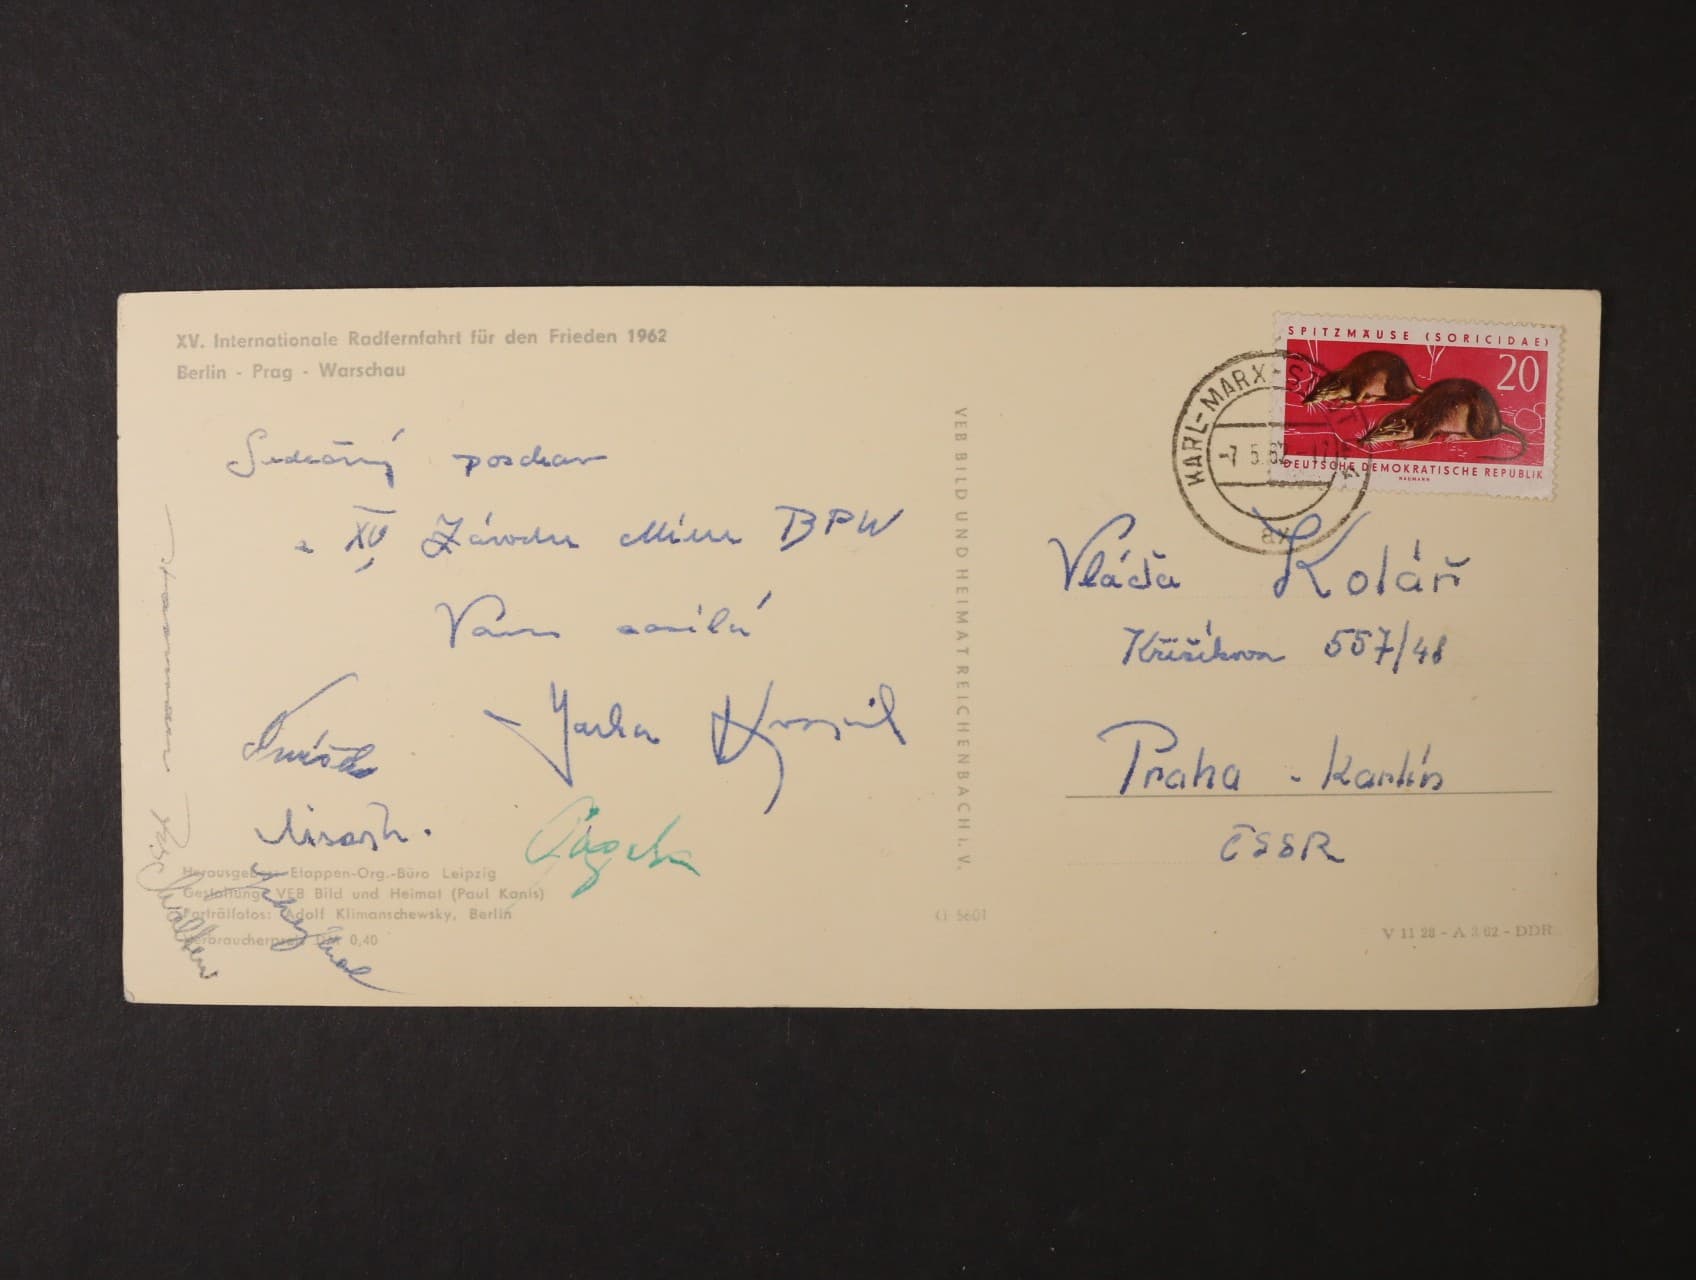 XV. Internationale Radfernfahrt für den Frieden 1962
Berlin - Prag - Warschau
Srdečný pozdrav
z XV. Závodu Míru BPW
Vám zasílá
Jarka
Herausgeber: Etappen-Org.-Büro Leipzig
Gestaltung: VEB Bild und Heimat (Paul Kanis)
Porträtfotos: Adolf Klimanschewsky, Berlin
Verbraucherpreis DM 0,40
VEB BILD UND HEIMAT REICHENBACH i. V.
G 5601
SPITZMÄUSE (SORICIDAE)
20
DEUTSCHE DEMOKRATISCHE REPUBLIK
NAUMANN
KARL-MARX-STADT
-7.5.62.-17
Vláďa Kolář
Křižíkova 557/48
Praha - Karlín
ČSSR
V 11 28 - A 3 62 - DDR